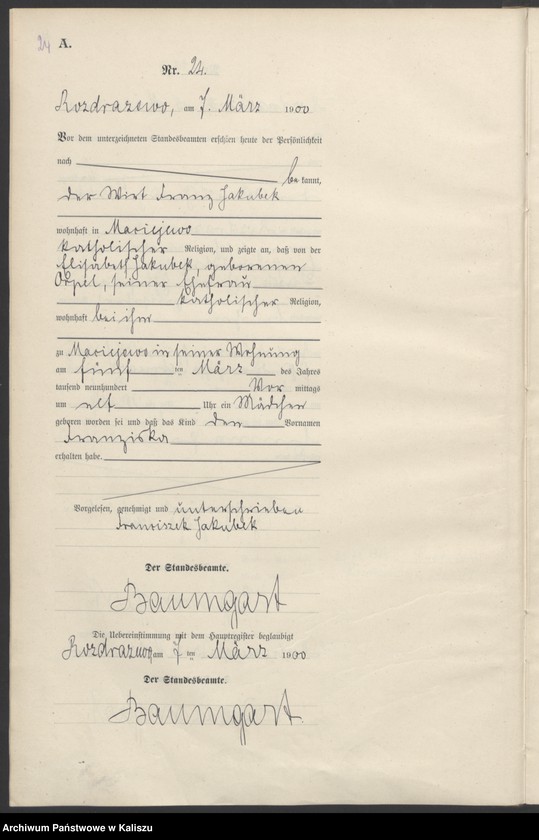 24 A.
Nr. 24.
Rozdrazewo, am 7. März 1900
Vor dem unterzeichneten Standesbeamten erschien heute der Persönlichkeit
nach
be kannt,
der Wirt Franz Jakubek
wohnhaft in Maciejewo
katholischer Religion, und zeigte an, daß von der
Elisabeth Jakubek, geborenen
Orpel, seiner Ehefrau
katholischer Religion,
wohnhaft bei ihm
zu Maciejewo in seiner Wohnung
am fünf ten März des Jahres
tausend neunhundert Vor mittags
um elf Uhr ein Mädchen
geboren worden sei und daß das Kind den Vornamen
Franziska
erhalten habe.
Vorgelesen, genehmigt und unterschrieben
Franciszek Jakubek
Der Standesbeamte.
Baumgart
Die Uebereinstimmung mit dem Hauptregister beglaubigt
Rozdrazewo am 7 ten März 1900
Der Standesbeamte.
Baumgart
Archiwum Państwowe w Kaliszu